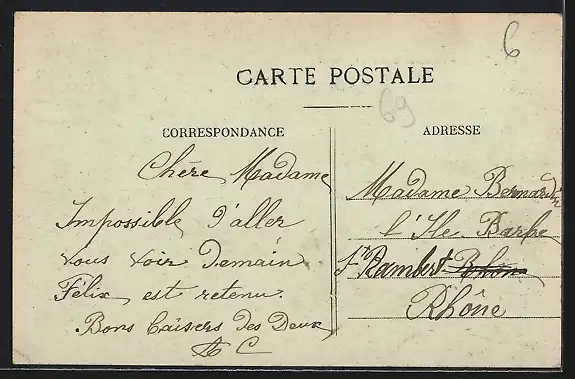 6
CARTE POSTALE
69
CORRESPONDANCE
Chère Madame
Impossible d'aller
vous voir Demain
Félix est retenu.
Bons baisers des Deux
A C
ADRESSE
Madame Bernardin
l'Ile Barbe
St Rambert Rhône
Rhône